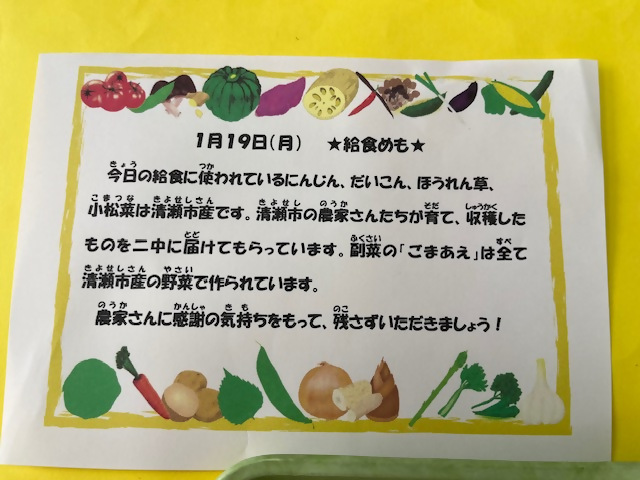 1月19日(月) ★給食めも★
今日の給食に使われているにんじん、だいこん、ほうれん草、
小松菜は清瀬市産です。清瀬市の農家さんたちが育て、収穫した
ものを二中に届けてもらっています。副菜の「ごまあえ」は全て
清瀬市産の野菜で作られています。
農家さんに感謝の気持ちをもって、残さずいただきましょう!